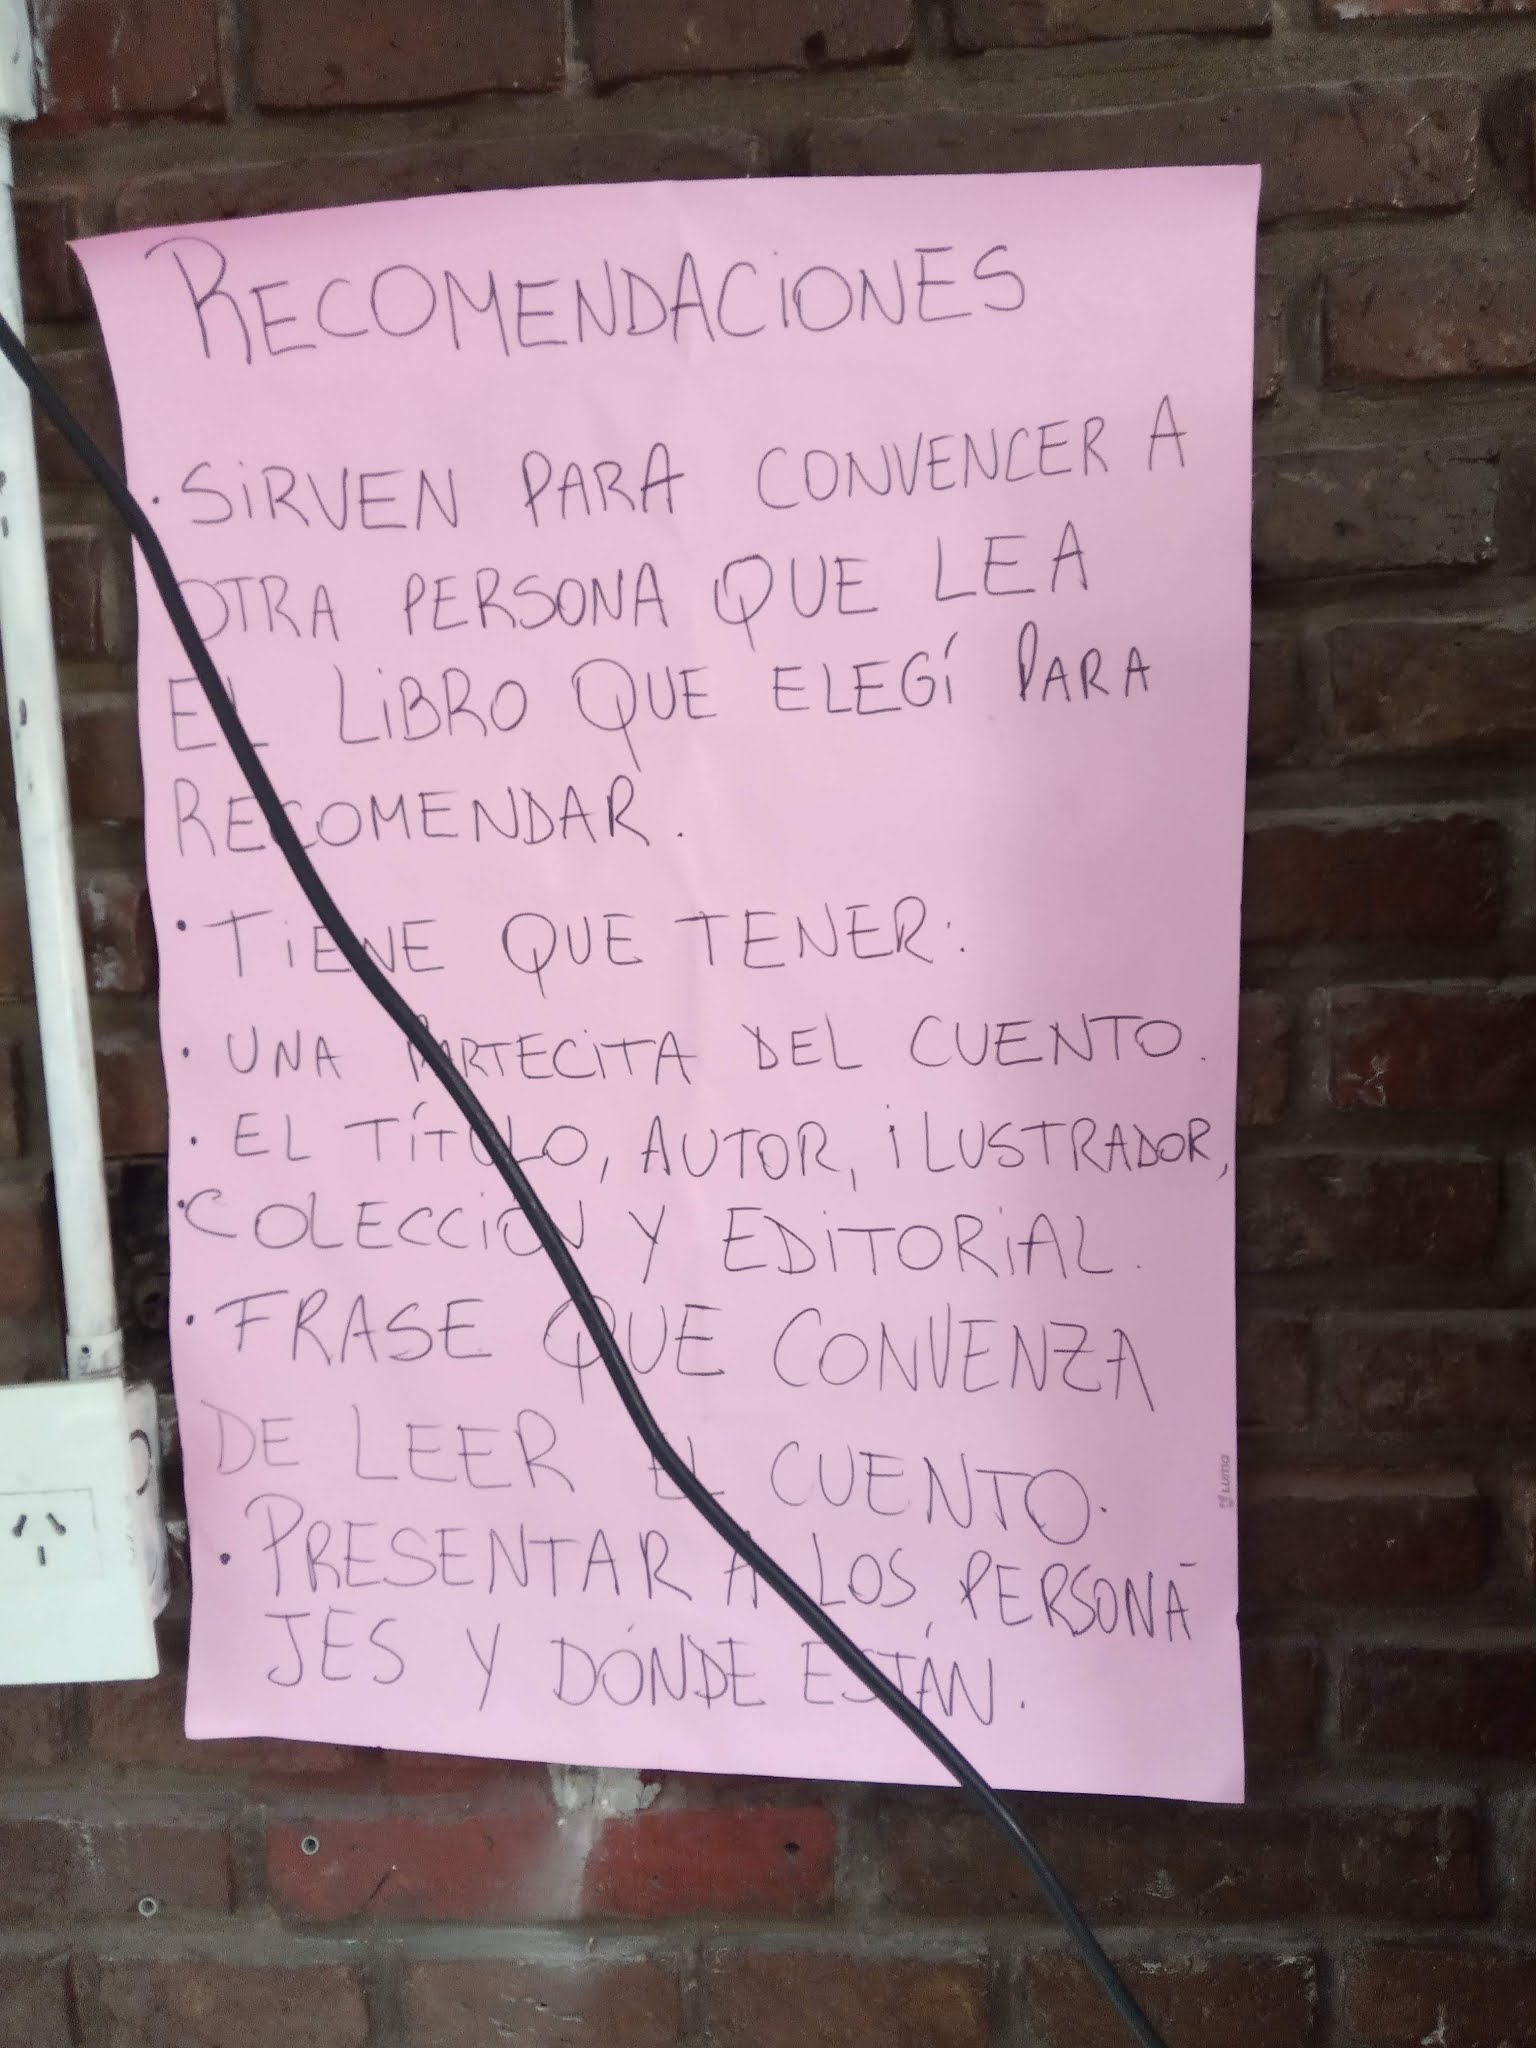 RECOMENDACIONES
· SIRVEN PARA CONVENCER A
OTRA PERSONA QUE LEA
EL LIBRO QUE ELEGÍ PARA
RECOMENDAR.
· TIENE QUE TENER:
· UNA PARTECITA DEL CUENTO.
· EL TÍTULO, AUTOR, ILUSTRADOR,
COLECCIÓN Y EDITORIAL.
· FRASE QUE CONVENZA
DE LEER EL CUENTO.
· PRESENTAR A LOS PERSONA-
JES Y DÓNDE ESTÁN.
LUMA